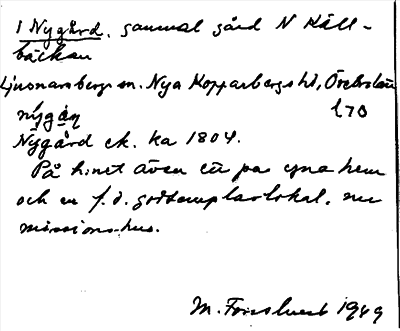 1 Nygård, gammal gård N Käll-
bäcken
Ljusnarsbergs sn. Nya Kopparbergs hd, Örebro län
nýgä̀ṇ 170
Nygård ek. ka 1804.
På h:net även ett par egna hem
och en f.d. godtemplarlokal, nu
missionshus.
M. Forslund 1949